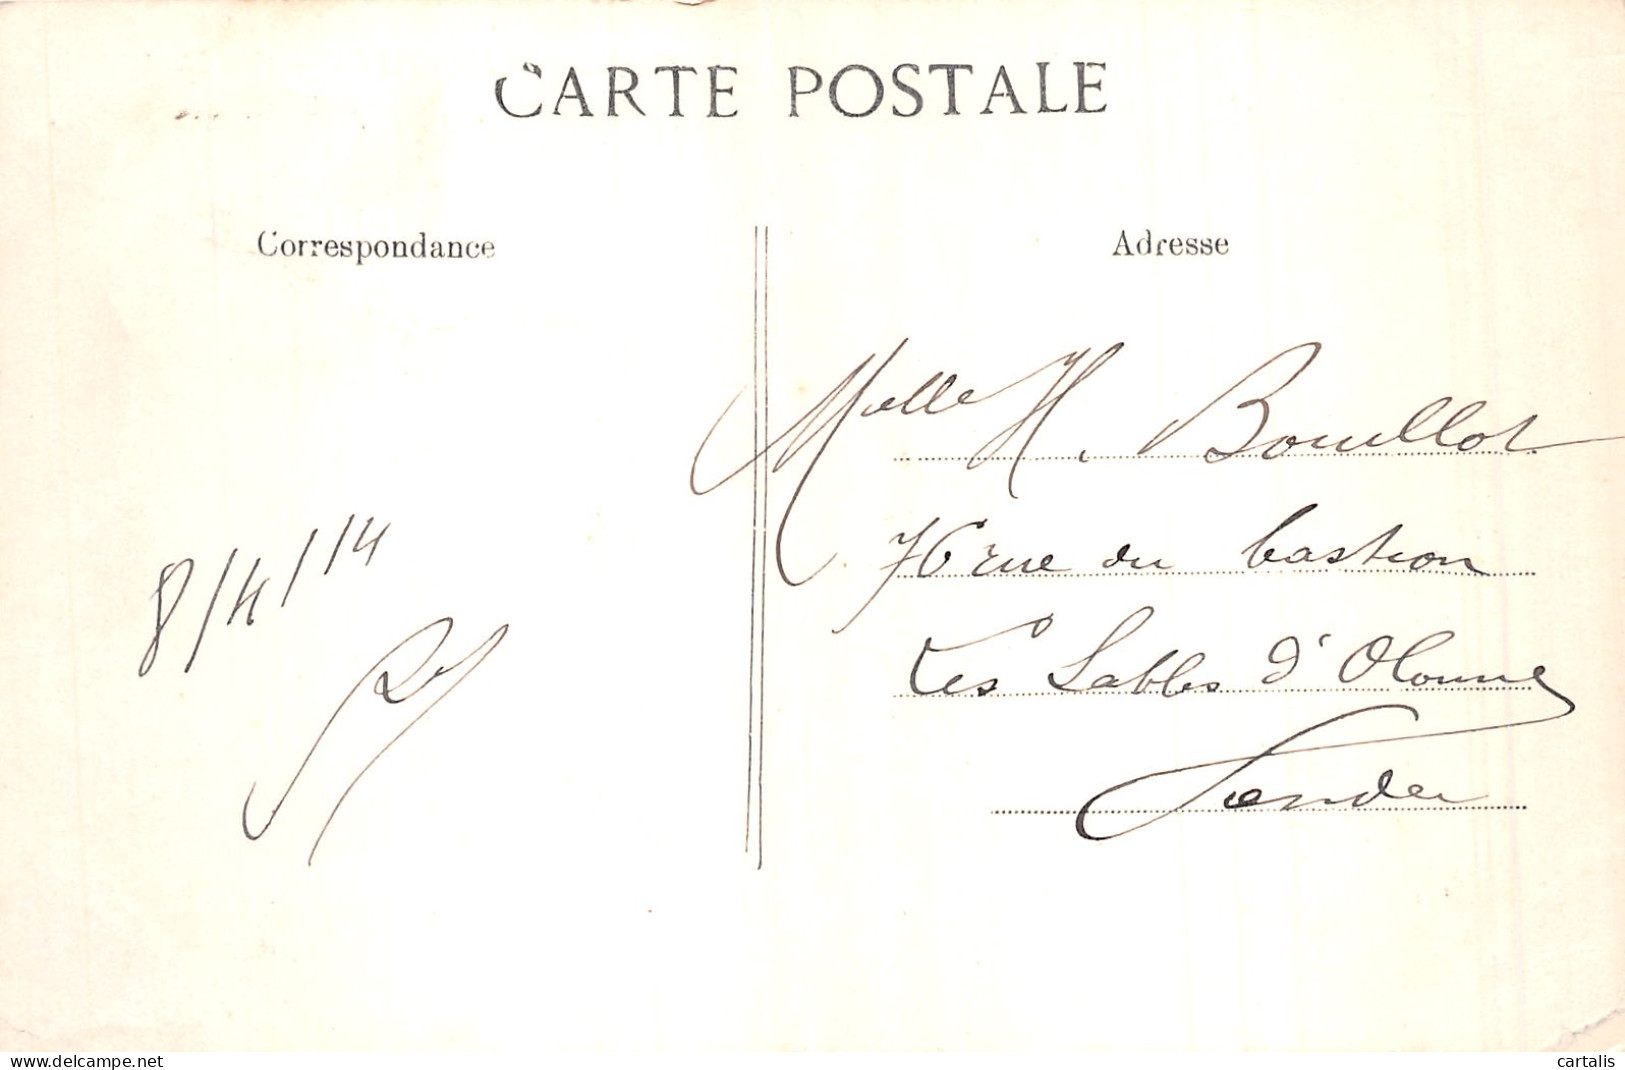 CARTE POSTALE
Correspondance
Adresse
Melle H. Bouillot
76 rue du bastion
Les Sables d'Olonne
Vendée
8/4/14
www.delcampe.net
cartalis